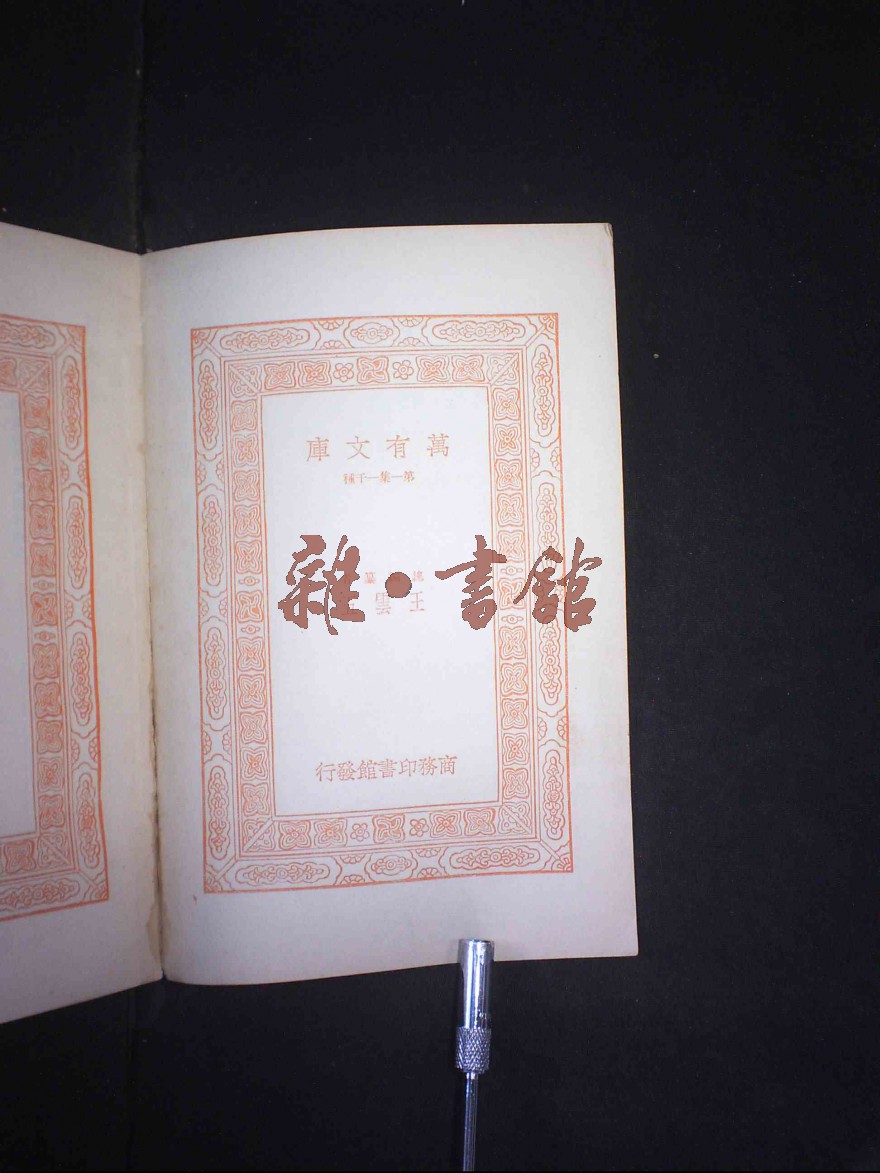 萬有文庫
第一集一千種
王雲
商務印書館發行
雜·書館